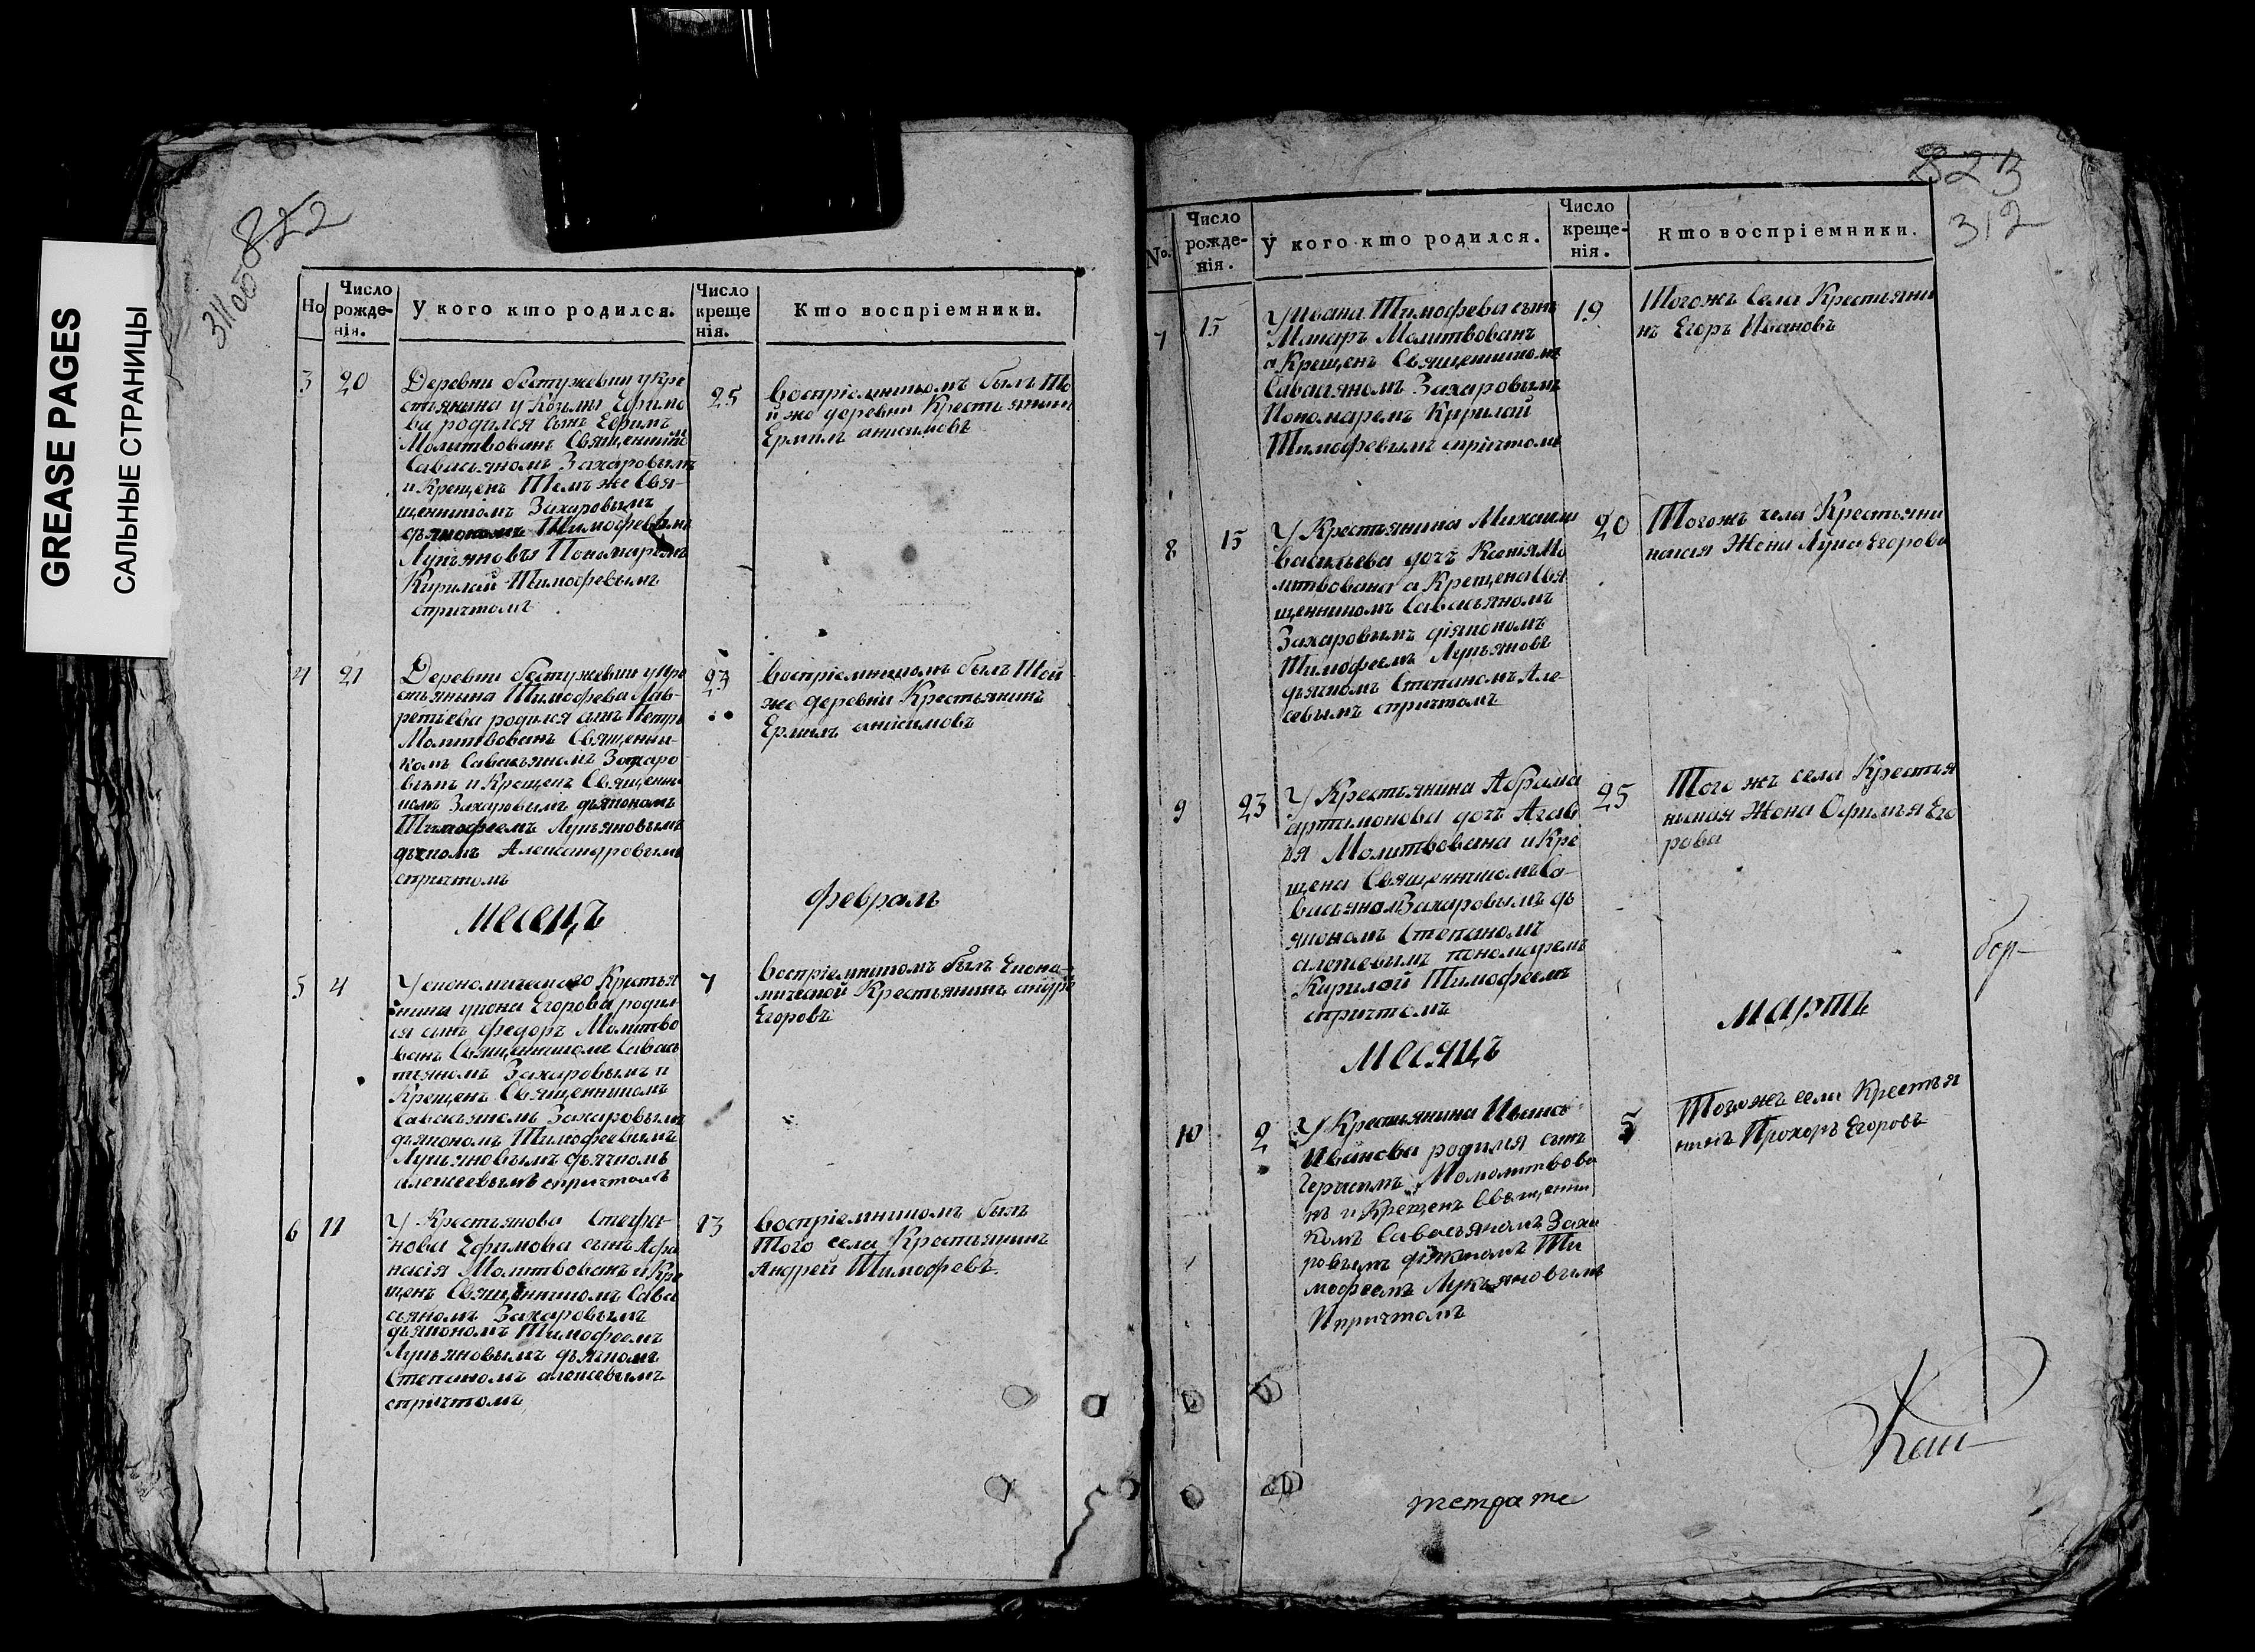 GREASE PAGES
САЛЬНЫЕ СТРАНИЦЫ
822
311об
Но
Число рожде-нія.
У кого кто родился.
Число креще нія.
Кто воспріемники.
3
20
Деревни бестужевки укре
стьянина у Козьмы Ефимо
ва родился сынъ Ефимъ
Молитвованъ Священнико
Савасьяномъ Захаровымъ
и Крещенъ Темъ же Свя-
щенникомъ Захаровымъ
дьякономъ Тимофеевымъ
Лукъяновъм Пономаремъ
Кирилай Тимофевымъ
спричтомъ
25
воспріемникомъ былъ То
й же деревни Крестьянин
Ермилъ анисимовъ
4
21
Деревни бестужевки укре
стьянина Тимофева Лав-
рентьева родился сынъ Петръ
Молитвованъ Священни-
комъ Савасьяномъ Захаро-
вымъ и Крещенъ Священни
комъ Захаровымъ дьякономъ
Тимофеемъ Лукъяновымъ
дьячкомъ Александровымъ
спричтомъ
воспріемникомъ былъ Той
же деревни Крестьянинъ
Ермилъ анисимовъ
месецъ
февраль
5
4
У економическаго Крестья
нина Егорова родил-
ся сынъ федоръ Молитво
ванъ Священникомъ Савась
тьяномъ Захаровымъ и
Крещенъ Священникомъ
Савасьяномъ Захаровымъ
дьякономъ Тимофеевымъ
Лукьяновымъ дьячкомъ
алексеевымъ спричтомъ
7
воспріемникомъ былъ Еконо-
мической Крестьянинъ
Егоровъ
6
11
У Крестьянова Стефа-
нова Ефимова сынъ Афа
насія Молитвованъ и Кре
щенъ Священникомъ Сава
сьяномъ Захаровымъ
дьякономъ Тимофеемъ
Лукьяновымъ дьячкомъ
Степаномъ алексевымъ
спричтомъ
13
воспріемникомъ былъ
Того села Крестьянинъ
Андрей Тимофевъ
823
312
No.
Число рожде-нія.
У кого кто родился.
Число креще-нія.
Кто воспріемники.
7
15
У Ивана Тимофева сынъ
Макаръ Молитвованъ
а Крещенъ Священникомъ
Савасьяномъ Захаровымъ
Пономаремъ Кирилай
Тимофевымъ спричтомъ
19
Тогожъ Села Крестьяни
нъ Егоръ Ивановъ
8
15
У Крестьянина Михаила
васильева дочь Ксенія Мо
литвована а Крещена Свя
щенникомъ Савасьяномъ
Захаровымъ діякономъ
Тимофеемъ Лукъяновъ
дьячкомъ Степаномъ Але-
севымъ спричтомъ
20
Тогожъ села Крестьяни
Жена Егорова
9
23
У Крестьянина Абрама
артимонова дочь Агаѳ
ья Молитвована и Кре
щена Священникомъ Са-
васьяномъ Захаровымъ дь
якономъ Степаномъ
алексевымъ пономаремъ
Кирилой Тимофеемъ
спричтомъ
25
Того жъ села Крестья
нская Жена Офимья Его
рова
бср-
Месяцъ
мартъ
10
2
У Крестьянина Ивана
Иванова родился сынъ
Герасимъ Молитвова
нъ и Крещенъ Священни
комъ Савасьяномъ Заха
ровымъ діякономъ Ти
мофеемъ Лукъяновымъ
Ипричтомъ
5
Тогожъ села Крестья
нинъ Прохоръ Егоровъ